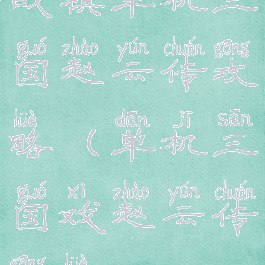 单机三
guó zhào yún chuán gōng
国赵云传攻
lüè dān jī sān
略（单机三
guó xì zhào yún chuán
国戏赵云传
gōng lüè